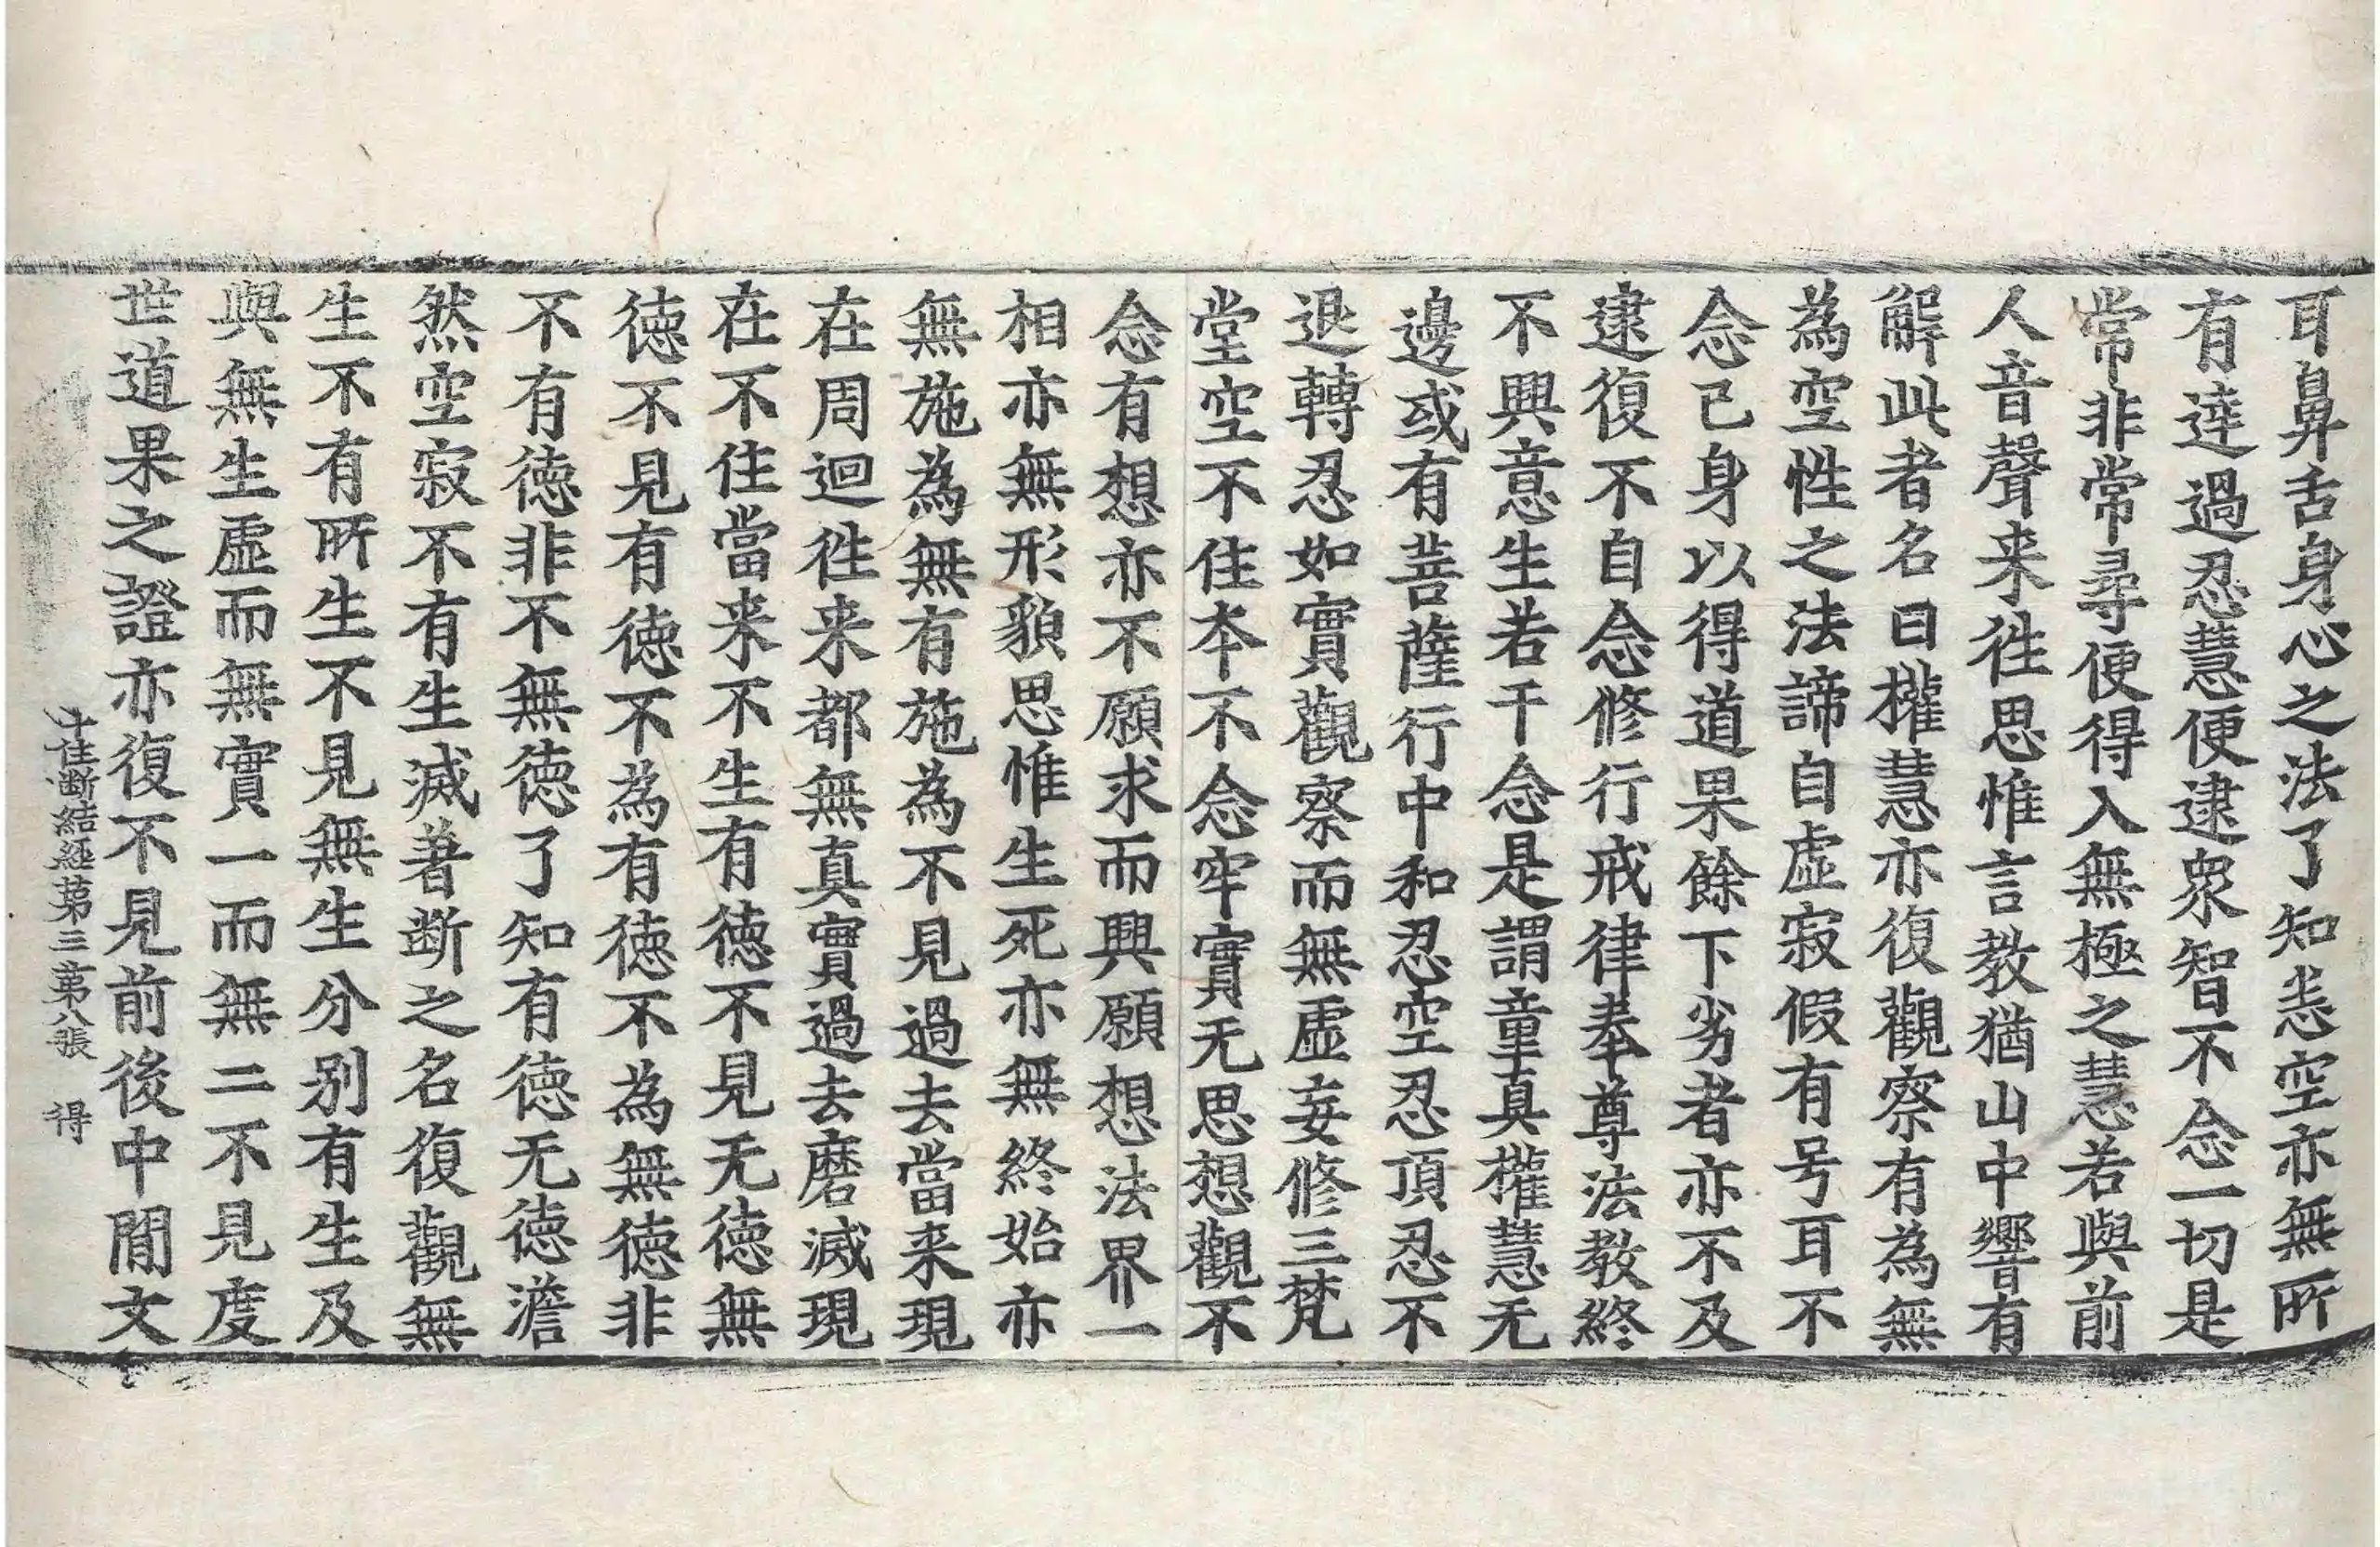 耳鼻舌身心之法了知恙空亦無所
有達過忍慧便逮衆智不念一切是
常非常尋便得入無極之慧若與前
人音聲来徃思惟言教猶山中響有
解此者名曰權慧亦復觀察有為無
為空性之法諦自虛寂假有号耳不
念已身以得道果餘下劣者亦不及
逮復不自念修行戒律奉尊法教終
不興意生若干念是謂童真權慧无
邊或有菩薩行中和忍空忍頂忍不
退轉忍如實觀察而無虛妄修三梵
堂空不住本不念牢實无思想觀不
念有想亦不願求而興願想法界一
相亦無形貌思惟生死亦無終始亦
無施為無有施為不見過去當来現
在周迴徃来都無真實過去磨滅現
在不住當来不生有徳不見无徳無
徳不見有徳不為有徳不為無徳非
不有徳非不無徳了知有徳无徳澹
然空寂不有生滅著断之名復觀無
生不有所生不見無生分别有生及
與無生虛而無實一而無二不見度
世道果之證亦復不見前後中間文
十住断結經第三第八張　得